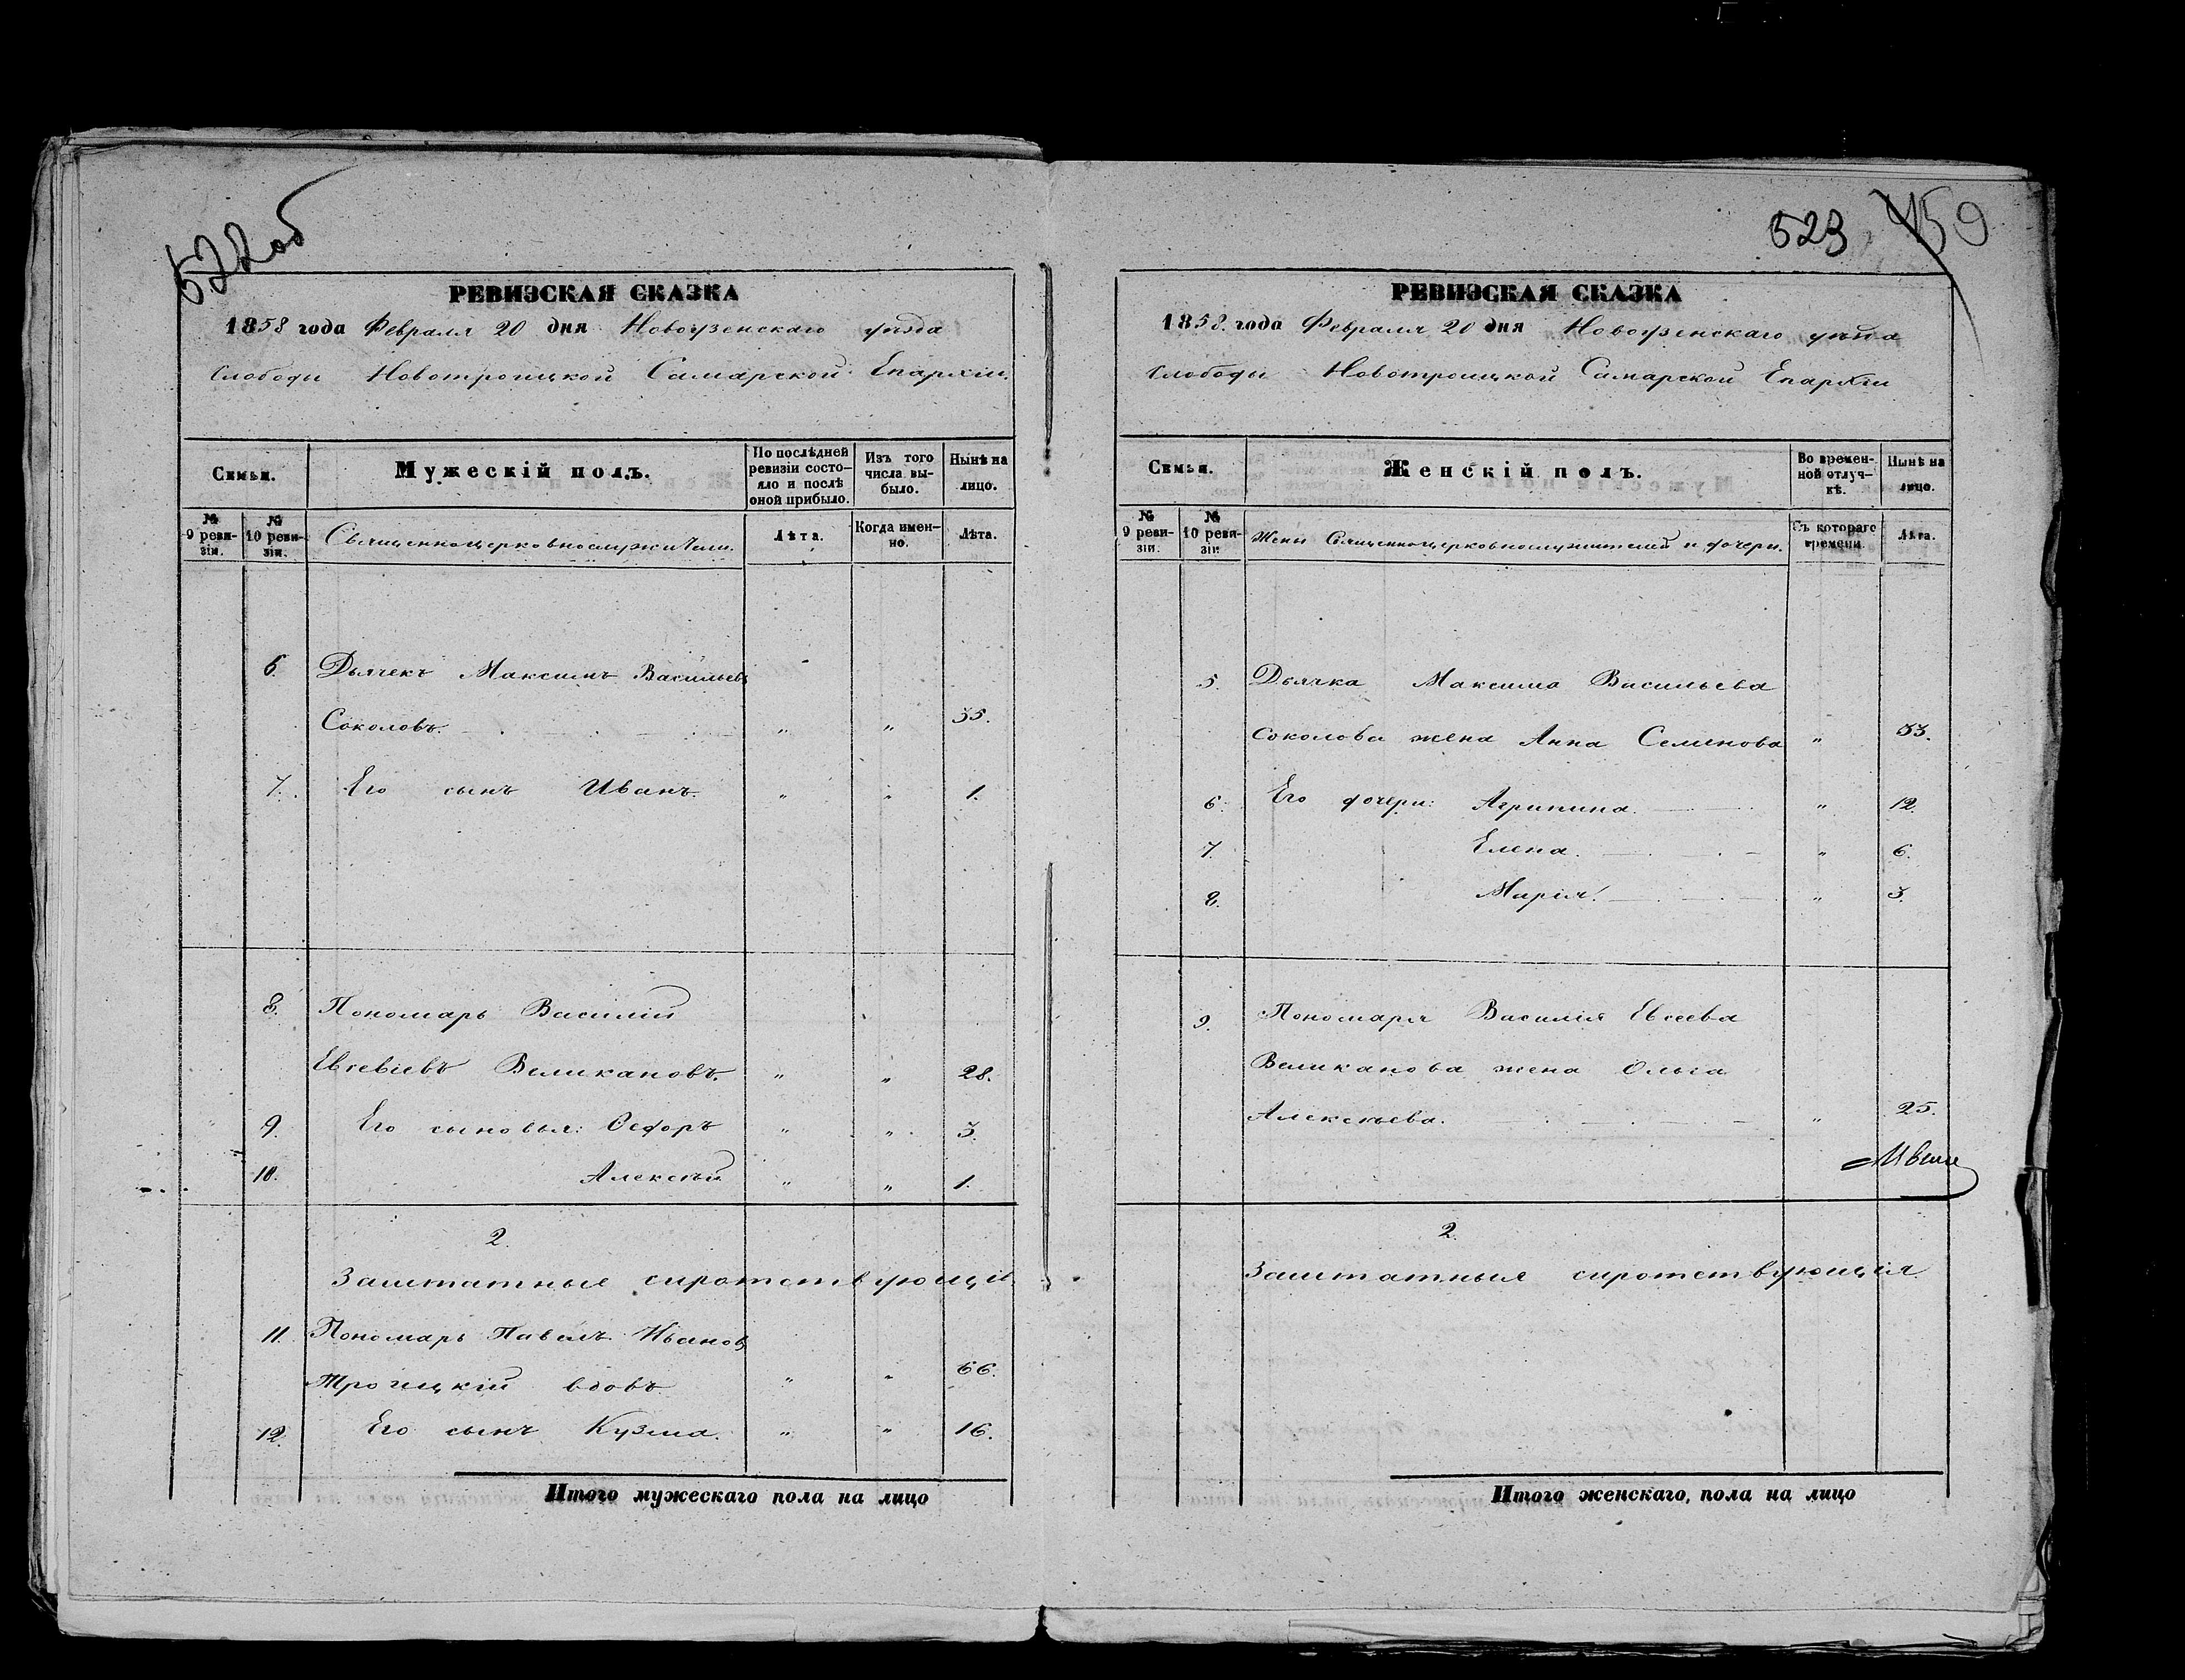 522об
РЕВИЗСКАЯ СКАЗКА
1858 года Февраля 20 дня Новоузенскаго уѣзда
Слободы Новотроицкой Самарской Епархіи.
Семьи.
Мужескій полъ.
По послѣдней ревизіи состо-
яло и послѣ оной прибыло.
Изъ того числа вы-
было.
Нынѣ на лицо.
№ 9 реви-
зіи.
№ 10 реви-
зіи.
Священноцерковнослужители.
Лѣта.
Когда имен-
но.
Лѣта.
6. Дьячекъ Максимъ Васильевъ
Соколовъ. " " 35.
7. Его сынъ Иванъ. " " 1.
8. Пономарь Василій
Евсевіевъ Великановъ. " " 28.
9. Его сыновья: Ѳедоръ " " 3.
10. Алексѣй " " 1.
2.
Заштатные сиротствующіе.
11. Пономарь Павелъ Ивановъ
Троицкій вдовъ " " 66.
12. Его сынъ Кузма. " " 16.
Итого мужескаго пола на лицо
523 459
РЕВИЗСКАЯ СКАЗКА
1858. года Февраля 20 дня Новоузенскаго уѣзда
Слободы Новотроицкой Самарской Епархіи
Семьи.
Женскій полъ.
Во времен-
ной отлуч-
кѣ.
Нынѣ на лицо.
№ 9 реви-
зіи.
№ 10 реви-
зіи.
Жены Священноцерковнослужителей и дочери.
Съ котораго времени.
Лѣта.
5. Дьячка Максима Васильева
Соколова жена Анна Семенова " 33.
6. Его дочери: Агрипина. " 12.
7. Елена. " 6.
8. Марія. " 3.
9. Пономаря Василія Евсеева
Великанова жена Ольга
Алексѣева. " 25.
2.
Заштатныя сиротствующія
Итого женскаго, пола на лицо